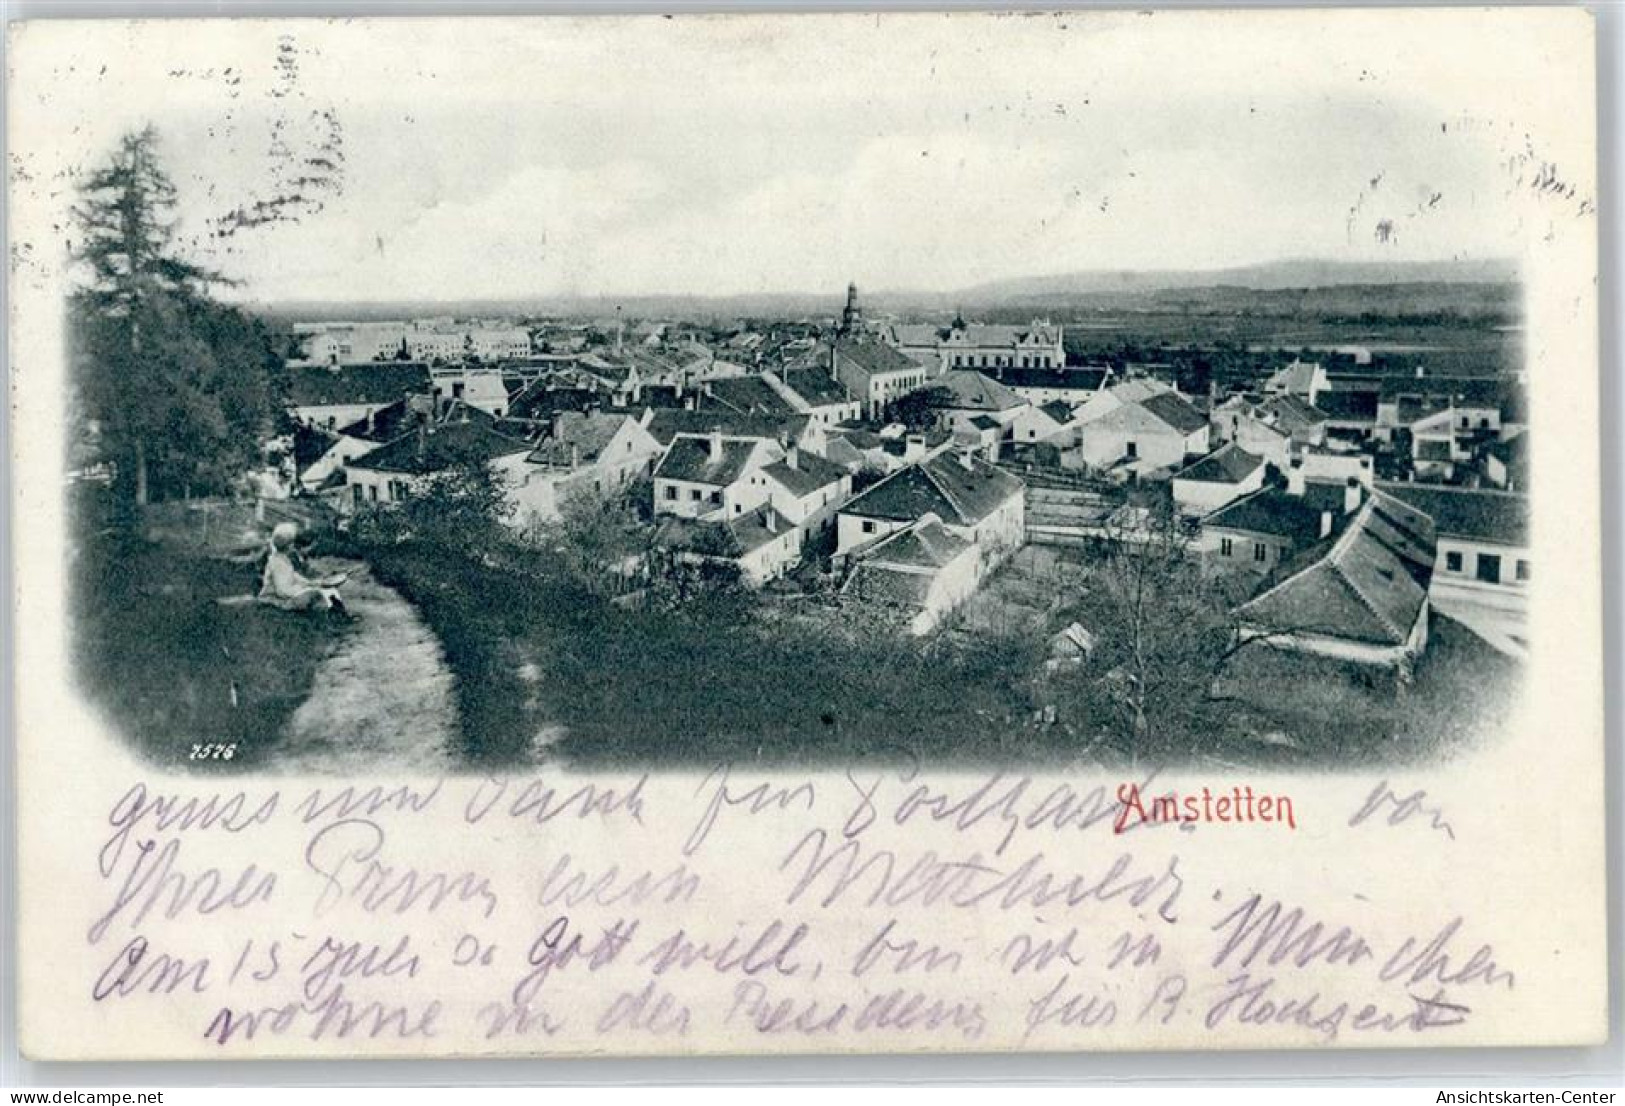 7576
Amstetten
gruss und Dank für Postkarte von
Ihrer Prinzessin Mathilde.
Am 15 Juli so Gott will, bin ich in München
wohne in der Residenz für R. Hochzeit
delcampe.net
Ansichtskarten-Center